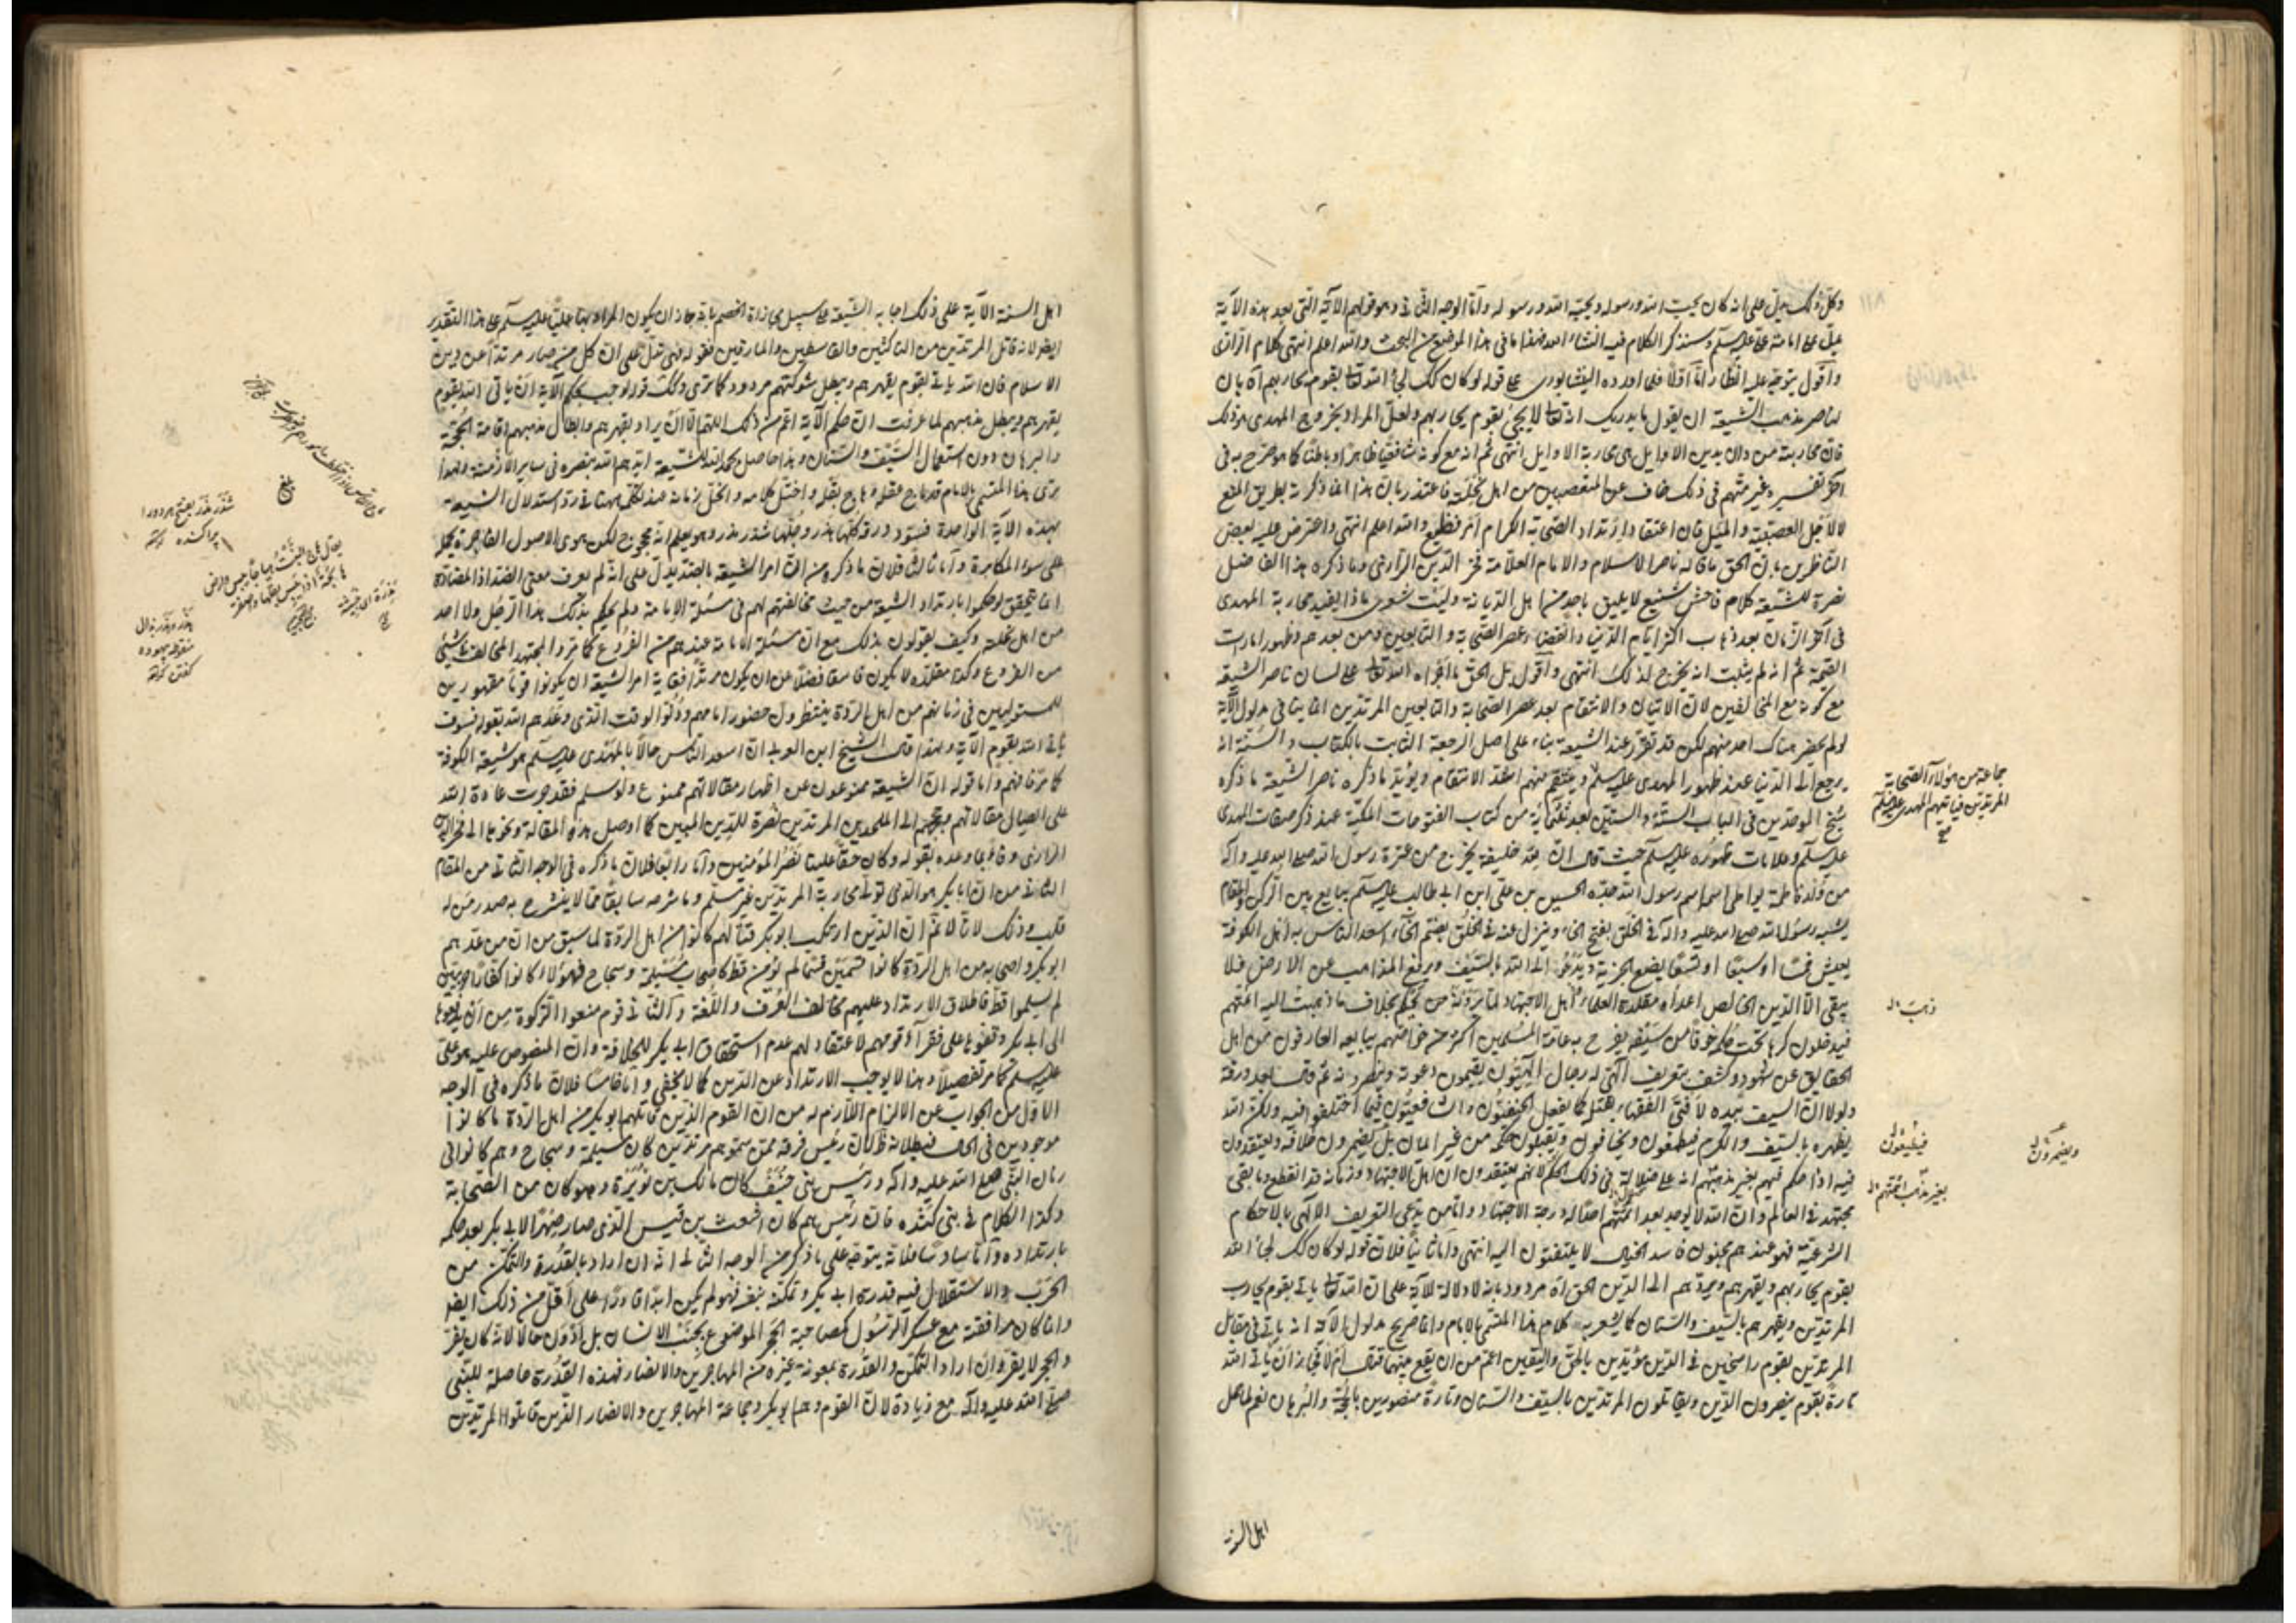 وكل ذلك يدل على انه كان يحب الله ورسوله ويحبه الله ورسوله وأما الوجه الثاني وهو قولهم الآية التي بعد هذه الآية
على امامة علي عليه السلم وسنذكر الكلام فيه انشاء الله فهذا ما في هذا الموضع من البحث والله اعلم انتهى كلام الرازي
وأقول يتوجه عليه انظار أما أولا فلما اورده النيشابوري على قوله لو كان كك لجئ الله تعالى بقوم يحاربهم اه بان
لناصر مذهب الشيعة ان يقول ما يدريك انه تعالى لا يجئ بقوم يحاربهم ولعل المراد بخروج المهدي هو ذلك
فان محاربة من دان بدين الاوايل هي محاربة الاوايل انتهى ثم انه مع كونه شافعيا ظاهرا وباطنا كما هو صرح به في
آخر تفسيره وغير متهم في ذلك خاف عن المتعصبين من اهل نحلته فاعتذر بان هذا انما ذكرته بطريق المنع
لا لاجل العصبية والميل فان اعتقاد ارتداد الصحابة الكرام امر فظيع والله اعلم انتهى واعترض عليه بعض
الناظرين بان الحق ما قاله ناصر الاسلام والامام العلامة فخر الدين الرازي وما ذكره هذا الفاضل
نصرة للشيعة كلام فاحش شنيع لا يليق باحد من اهل الديانة وليت شعري ماذا يفيد محاربة المهدي
في آخر الزمان بعد ذهاب اكثر ايام الدنيا وانقضاء عصر الصحابة والتابعين ومن بعدهم وظهور امارات
القيمة ثم انه لم يثبت انه يخرج لذلك انتهى وأقول بل الحق ما اجراه الله تعالى على لسان ناصر الشيعة
مع كونه مع المخالفين لان الاتيان والانتقام بعد عصر الصحابة والتابعين المرتدين انما ينافي مدلول الآية
لو لم يحضر هناك احد منهم لكن قد تقرر عند الشيعة بناء على اصل الرجعة الثابت بالكتاب والسنة انه
يرجع الى الدنيا عند ظهور المهدي عليه السلم وينتقم منهم اشد الانتقام ويؤيد ما ذكره ناصر الشيعة ما ذكره
شيخ الموحدين في الباب الستة والستين بعد ثلثمائة من كتاب الفتوحات المكية عند ذكر صفات المهدي
عليه السلم وعلامات ظهوره عليه السلم حيث قال ان لله خليفة يخرج من عترة رسول الله صلى الله عليه واله
من ولد فاطمة يواطى اسمه اسم رسول الله جده الحسين بن علي ابن ابي طالب عليه السلم يبايع بين الركن والمقام
يشبه رسول الله صلى الله عليه واله في الخلق بفتح الخاء وينزل عنه في الخلق بضم الخاء اسعد الناس به اهل الكوفة
يعيش خمسا او سبعا او تسعا يضع الجزية ويدعو الى الله بالسيف ويرفع المذاهب عن الارض فلا
يبقى الا الدين الخالص اعداؤه مقلدة العلماء اهل الاجتهاد لما يرونه من الحكم بخلاف ما ذهبت اليه ائمتهم
فيدخلون كرها تحت حكمه خوفا من سيفه يفرح به عامة المسلمين اكثر من خواصهم يبايعه العارفون من اهل
الحقايق عن شهود وكشف بتعريف الهي له رجال الهيون يقيمون دعوته وينصرونه ثم قال بعد ورقة
ولولا ان السيف بيده لافتى الفقهاء بقتله كما يفعل الحنفيون والشافعيون فيما اختلفوا فيه ولكن الله
يظهره بالسيف والكرم فيطمعون ويخافون ويقبلون حكمه من غير ايمان بل يضمرون خلافه ويعتقدون
فيه اذا حكم فيهم بغير مذهبهم انه على ضلالة في ذلك الحكم لانهم يعتقدون ان اهل الاجتهاد وزمانه قد انقطع وما بقي
مجتهد في العالم وان الله لا يوجد بعد ائمتهم احدا له درجة الاجتهاد واما من يدعي التعريف الالهي بالاحكام
الشرعية فهو عندهم مجنون فاسد الخيال لا يلتفتون اليه انتهى واما ثانيا فلان قوله لو كان كك لجاء الله
بقوم يحاربهم ويقهرهم ويردهم الى الدين الحق اه مردود بانه لا دلالة للآية على ان الله تعالى ياتي بقوم يحارب
المرتدين ويقهرهم بالسيف والسنان كما يشعر به كلام هذا المتسمى بالامام وانما صريح مدلول الآية انه ياتي في مقابل
المرتدين بقوم راسخين في الدين مؤيدين بالحق واليقين اعم من ان يقع بينهما قتال ام لا فيجاز ان ياتي الله
تارة بقوم ينصرون الدين ويقاتلون المرتدين بالسيف والسنان وتارة منصورين بالحجة والبرهان نعم لما حمل
جماعة من هؤلاء الصحابة
المرتدين فيقاتلهم المهدي عليه السلم
صح
ذهب
فيطيعون
ويضمرون
بغير مذهب ائمتهم
اهل السنة
اهل السنة الآية على ذلك اجابه الشيعة على سبيل مجاراة الخصم بانه جاز ان يكون المراد بها عليا عليه السلم على هذا التقدير
ايضا لانه قاتل المرتدين من الناكثين والقاسطين والمارقين فقوله فهي تدل على ان كل من صار مرتدا عن دين
الاسلام فان الله ياتي بقوم يقهرهم ويبطل شوكتهم مردود كما ترى وكك قوله لوجب بحكم الآية ان ياتي الله بقوم
يقهرهم ويبطل مذهبهم لما عرفت ان حكم الآية اعم من ذلك اللهم الا ان يراد بقهرهم وابطال مذهبهم اقامة الحجة
والبرهان دون استعمال السيف والسنان وهذا حاصل بحمد الله للشيعة ايدهم الله بنصره في ساير الازمنة ولهذا
ترى هذا المتسمى بالامام قد ماج عقله وهاج بقله واختل كلامه وانحل زمامه عند تكلمه ههنا في رد استدلال الشيعة
بهذه الآية الواحدة فسود ورقة كلها هذر وجلها شذر مذر وهو يعلم انه مجروح لكن هوى الاصول الفاجرة يحمله
على سوء المكابرة وأما ثالثا فلان ما ذكره من ان امر الشيعة بالضد يدل على انه لم يعرف معنى الضد اذ المضادة
انما يتحقق لو حكموا بارتداد الشيعة من حيث مخالفتهم لهم في مسئلة الامامة ولم يحكم بذلك هذا الرجل ولا احد
من اهل نحلته وكيف يقولون بذلك مع ان مسئلة الامامة عندهم من الفروع كما مر والمجتهد المخالف في شيء
من الفروع وكذا مقلده لا يكون فاسقا فضلا عن ان يكون مرتدا فغاية امر الشيعة ان يكونوا قوما مقهورين
للمستولين في زمانهم من اهل الردة ينتظرون حضور امامهم ودنو الوقت الذي وعدهم الله بقوله فسوف
ياتي الله بقوم الآية ولهذا قال الشيخ ابن العربي ان اسعد الناس حالا بالمهدي عليه السلم هو شيعة الكوفة
كما مر فافهم واما قوله ان الشيعة ممنوعون عن اظهار مقالاتهم ممنوع ولو سلم فقد جرت عادة الله
على ايصال مقالاتهم الى الملحدين المرتدين نصرة للدين المبين كما اوصل هذه المقالة ونحوها الى فخر الدين
الرازي وفاء بما وعده بقوله وكان حقا علينا نصر المؤمنين وأما رابعا فلان ما ذكره في الوجه الثاني من المقام
الثاني من ان ابا بكر هو الذي تولى محاربة المرتدين غير مسلم وما شرحه سابقا مما لا ينشرح به صدر من له
قلب وذلك لانا لا نم ان الذين ارتكب ابو بكر قتالهم كانوا من اهل الردة لما سبق من ان من عدهم
ابو بكر واصحابه من اهل الردة كانوا قسمين قسما لم يؤمن قط كاصحاب مسيلمة وسجاح فهؤلاء كانوا كفارا حربيين
لم يسلموا قط فاطلاق الارتداد عليهم مخالف العرف واللغة والثاني قوم منعوا الزكوة من ان يدفعوها
الى ابي بكر وفرقوها على فقراء قومهم لاعتقادهم عدم استحقاق ابي بكر للخلافة وان المنصوص عليه هو علي
عليه السلم كما مر تفصيلا وهذا لا يوجب الارتداد عن الدين كما لا يخفى واما خامسا فلان ما ذكره في الوجه
الاول من الجواب عن الالزام اللازم له من ان القوم الذين قاتلهم ابو بكر من اهل الردة ما كانوا
موجودين في الحال فبطلانه ظ لان رئيس فرقة ممن سموهم مرتدين كان مسيلمة وسجاح وهم كانوا في
زمان النبي صلى الله عليه واله ورئيس بني حنيف كان مالك بن نويرة وهو كان من الصحابة
وكذا الكلام في بني كندة فان رئيسهم كان اشعث بن قيس الذي صار صهرا لابي بكر بعد حكمه
بارتداده وأما سادسا فلانه يتوجه على ما ذكر من الوجه الثاني انه ان اراد بالقدرة والتمكن من
الحرب والاستقلال فيه قدرة ابي بكر وتمكنه بنفسه فهو لم يكن ابدا قادرا على اقل من ذلك ايضا
وانما كان مرافقته مع عسكر الرسول كمصاحبة الحجر الموضوع بجنب الانسان بل ادون حالا لانه كان يفر
والحجر لا يفر وان اراد التمكن والقدرة بمعونة غيره من المهاجرين والانصار فهذه القدرة حاصلة للنبي
صلى الله عليه واله مع زيادة لان القوم وهم ابو بكر وجماعة المهاجرين والانصار الذين قاتلوا المرتدين
شذر مذر بفتح هر دو را
پراكنده
هذر وهذر بذال
منقوطه بيهوده
كفتن